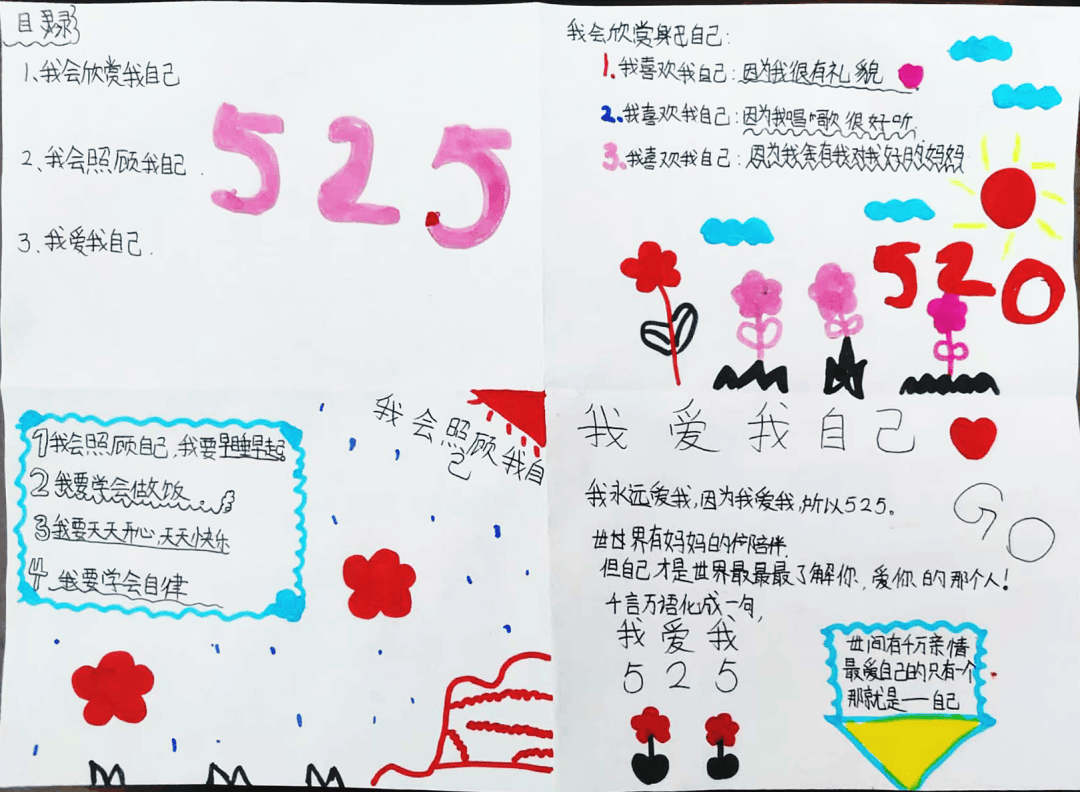 目录
1、我会欣赏我自己
2、我会照顾我自己.
3、我爱我自己.
525
我会欣赏自己:
1.我喜欢我自己:因为我很有礼貌
2.我喜欢我自己:因为我唱歌很好听.
3.我喜欢我自己:因为我有我对我好的妈妈
520
我会照顾我自
己
1我会照顾自己,我要早睡早起
2我要学会做饭
3我要天天开心,天天快乐
4、我要学会自律
我爱我自己
我永远爱我,因为我爱我,所以525。
GO
世世界有妈妈的陪伴.
但自己才是世界最最最了解你、爱你的那个人!
千言万语化成一句,
我爱我
525
世间有千万亲情
最爱自己的只有一个
那就是——自己